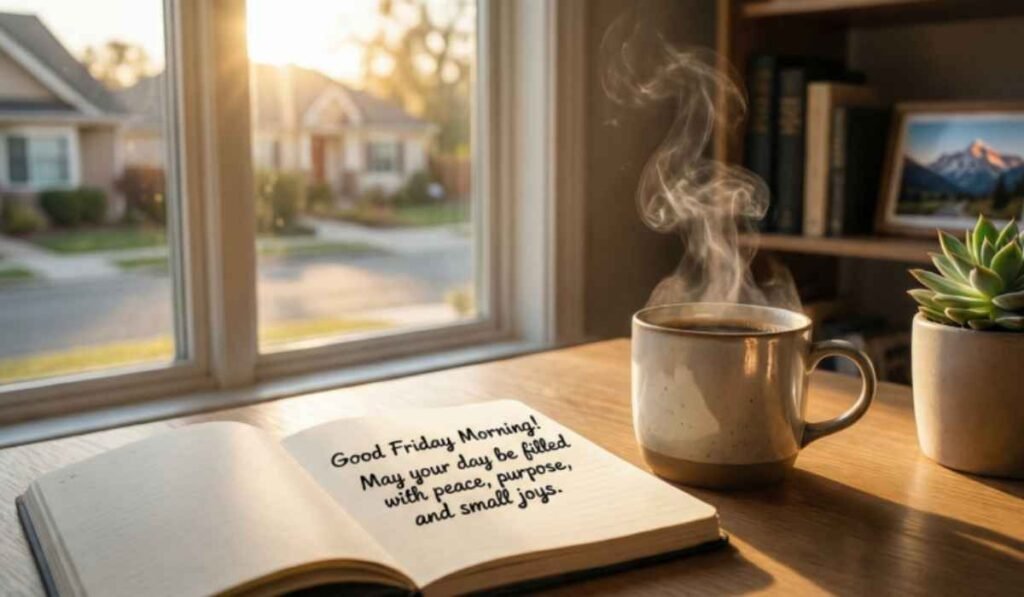 Good Friday Morning!
May your day be filled
with peace, purpose,
and small joys.